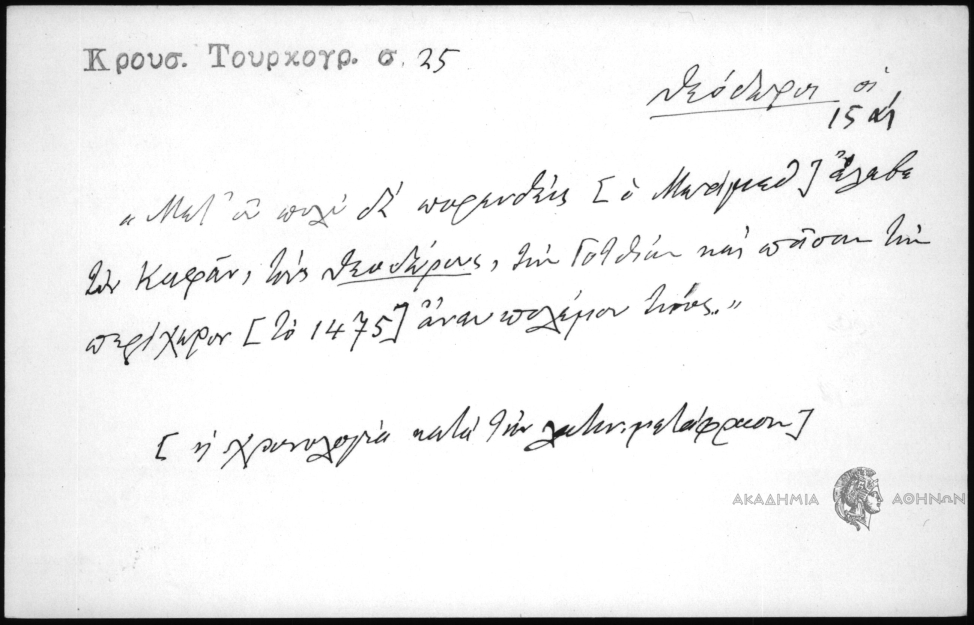 Κρουσ. Τουρκογρ. σ. 25
Θεόδωροι οἱ
15 αἰ
«Μετ' οὐ πολὺ δὲ πορευθεὶς [ὁ Μεχάμεθ] ἔλαβε
τὸν Καφᾶν, τοὺς Θεοδώρους, τὴν Γοτθίαν καὶ πᾶσαν τὴν
περίχωρον [τὸ 1475] ἄνευ πολέμου τινός.»
[ἡ χρονολογία κατὰ τὴν λατιν. μετάφραση]
ΑΚΑΔΗΜΙΑ ΑΘΗΝΩΝ